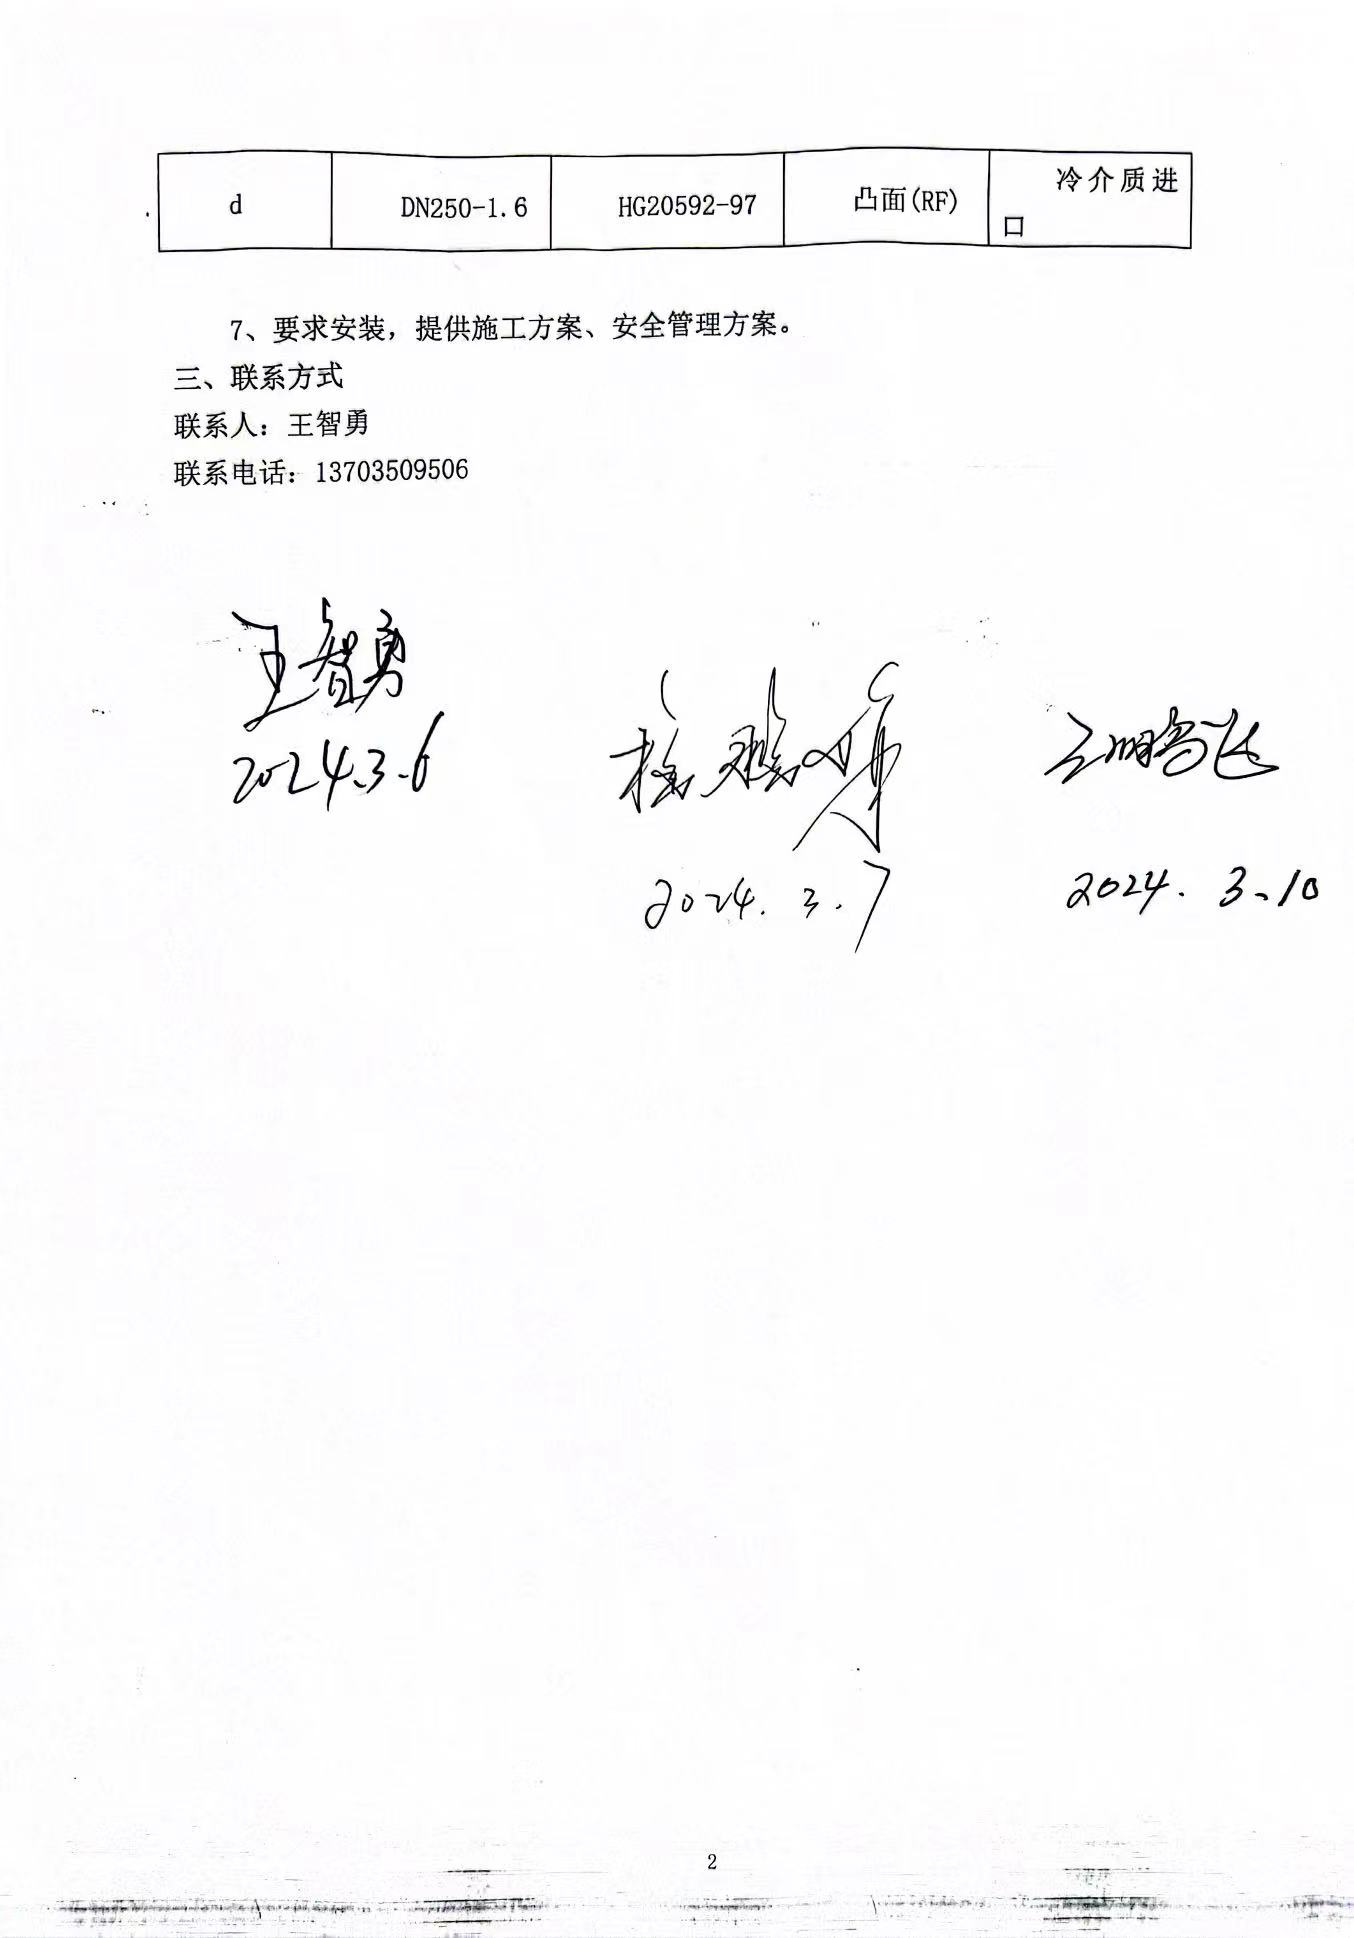 d DN250-1.6 HG20592-97 凸面(RF) 冷介质进
口
7、要求安装，提供施工方案、安全管理方案。
三、联系方式
联系人：王智勇
联系电话：13703509506
王智勇
2024.3.6
2024.3.7
2024.3.10
2